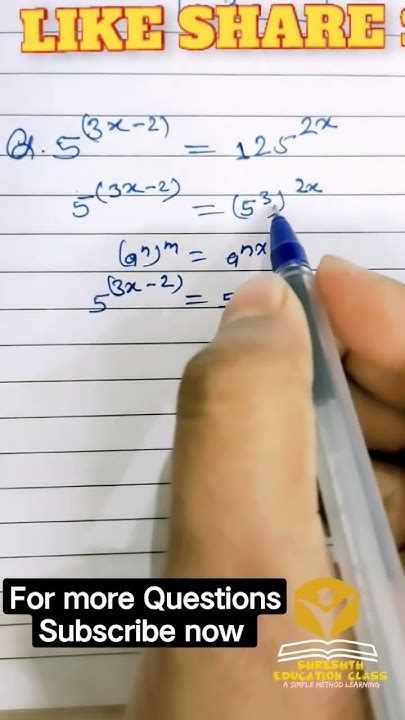 LIKE SHARE S
Q. 5^(3x-2) = 125^2x
5^(3x-2) = (5^3)^2x
(a^n)^m = a^nx
5^(3x-2) = 5
For more Questions
Subscribe now
SHRESHTH
EDUCATION CLASS
A SIMPLE METHOD LEARNING